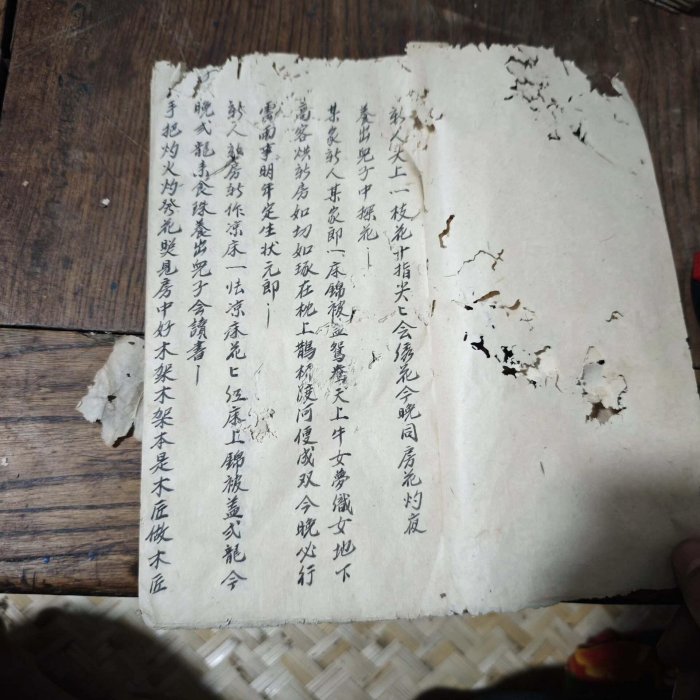 新人天上一枝花十指尖〻会绣花今晚同房花灼夜
養出兒子中探花
某家新人某家郎一床錦被盖鸳鸯天上牛女夢織女地下
高客烘新房如切如琢在枕上鵲桥渡河便成双今晚必行
雲雨事明年定生状元郎
新人新房新作凉床一怯凉床花〻红床上錦被盖弍龍今
晚弍龍来食珠養出兒子会讀書
手把灼火灼發花照見房中好木架木架本是木匠做木匠